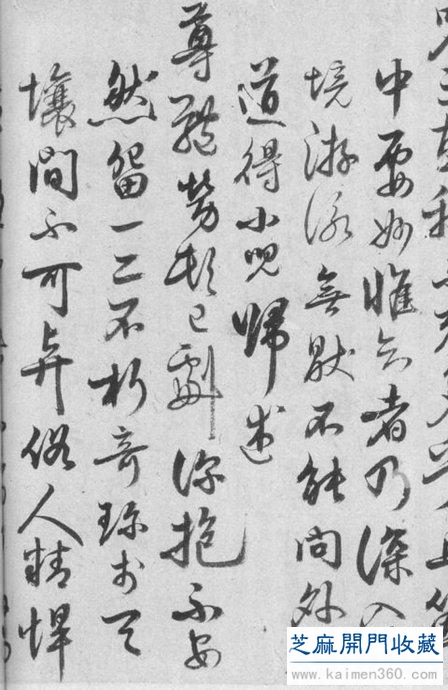 中要妙惟者乃深入
境游泳無厭不能向外
道得小兒歸述
尊體勞頓已劇深抱不安
然留一二不朽奇珍於天
壤間不可與俗人精悍
芝麻開門收藏
www.kaimen360.com